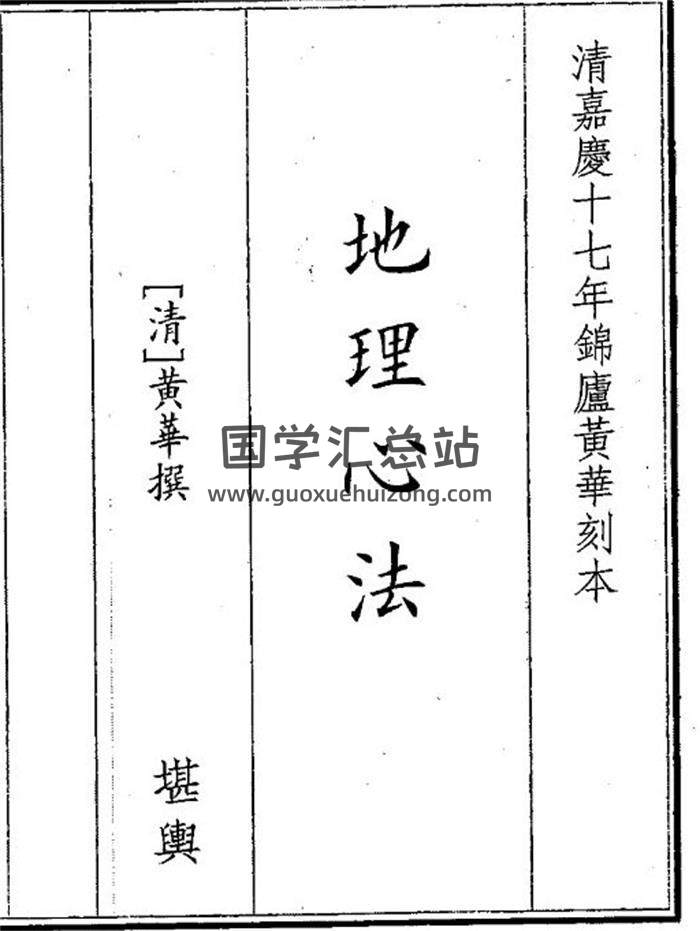 清嘉慶十七年錦廬黃華刻本
地理心法
[清]黃華撰
堪輿
国学汇总站
www.guoxuehuizong.com